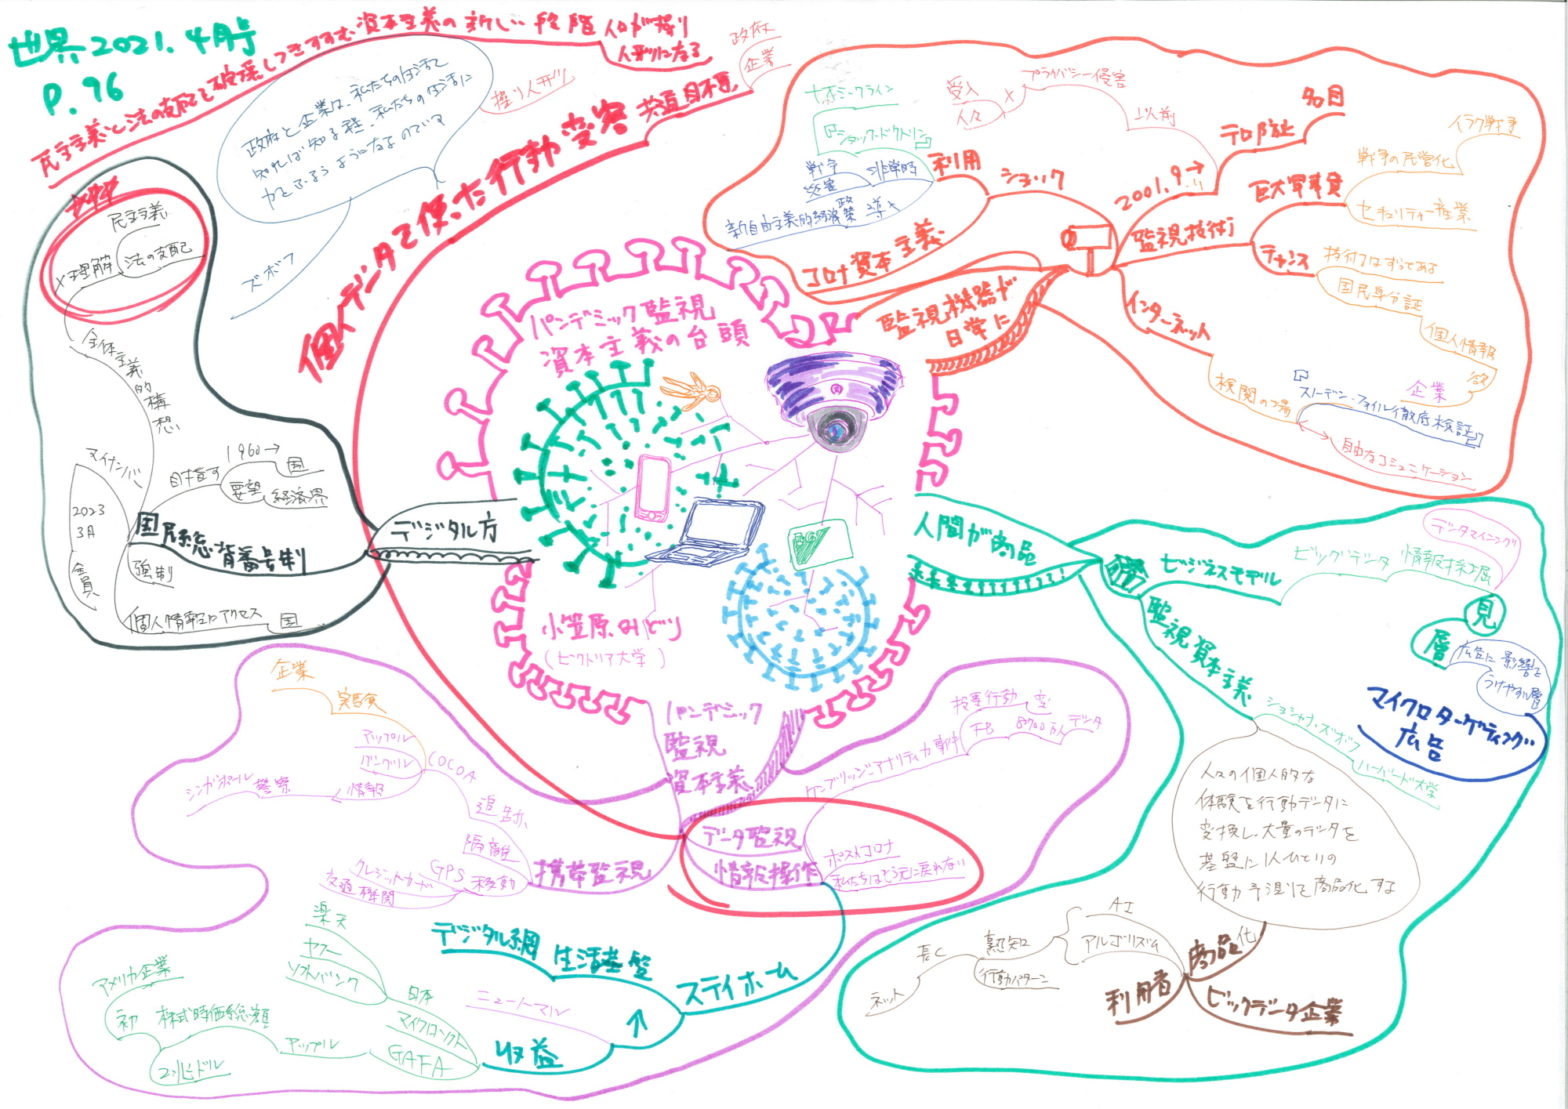 世界 2021.4月号
P.96
民主主義と法の支配を破壊してつきすすむ資本主義の新しい段階
人が操り
人形になる
個人データを使った行動変容
共通目的
政府
企業
操り人形
政府と企業は、私たちの生活を
知れば知る程、私たちの生活に
力をふるうようになるのです
ズボフ
民主主義
法の支配
×理解
全体主義的構想
マイナンバー
2023
3月
全員
国民総背番号制
目指す
要望
1960→
国
経済界
強制
個人情報にアクセス
国
デジタル庁
パンデミック監視
資本主義の台頭
小笠原みどり
(ビクトリア大学)
監視機器が
日常に
コロナ資本主義
ショック
利用
ナオミ・クライン
『ショック・ドクトリン』
戦争
災害
非常時
新自由主義的経済政策
導入
監視技術
2001.9→
以前
プライバシー侵害
人々
×
テロ防止
名目
巨大軍事費
戦争の民営化
イラク戦争
セキュリティー産業
チャンス
技術はすでにある
国民身分証
個人情報
企業
インターネット
検閲の場
『スノーデン・ファイル徹底検証』
自由なコミュニケーション
人間が商品
ビジネスモデル
ビッグデータ
情報採掘
データマイニング
見
層
広告に影響を
うけやすい層
マイクロターゲティング
広告
監視資本主義
ショシャナ・ズボフ
ハーバード大学
人々の個人的な
体験を行動データに
変換し、大量のデータを
基盤に1人ひとりの
行動予測を商品化する
商品化
ビックデータ企業
利用者
AI
アルゴリズム
熟知
行動パターン
長く
ネット
パンデミック
監視
資本主義
データ監視
情報操作
ケンブリッジ・アナリティカ事件
投票行動
変
FB
8700万人
データ
ポストコロナ
私たちはもう元に戻れない
携帯監視
追跡
COCOA
アップル
グーグル
企業
情報
警察
シンガポール
隔離
移動
GPS
クレジットカード
交通機関
ステイホーム
デジタル網
生活基盤
↑
収益
ニューノーマル
日本
楽天
ヤフー
ソフトバンク
マイクロソフト
GAFA
アップル
株式時価総額
アメリカ企業
初
2兆ドル